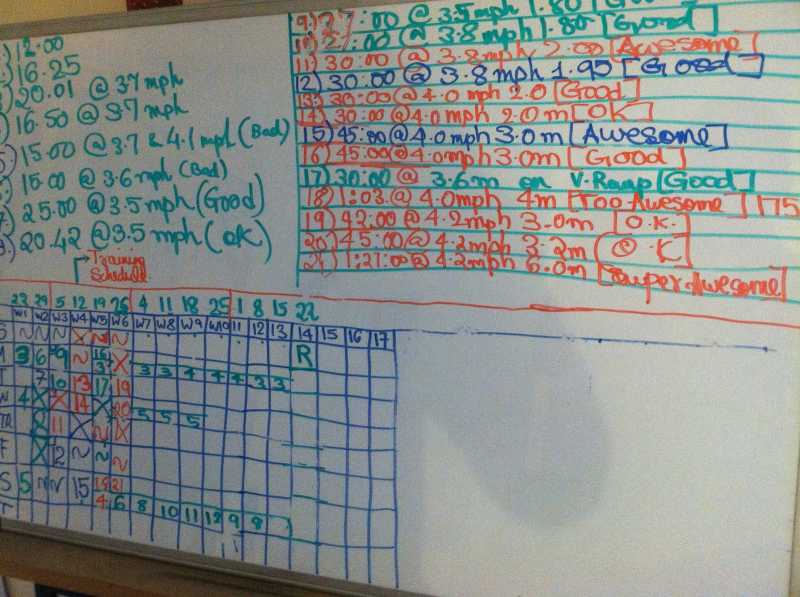 12.00
16.25
20.01 @ 3.7 mph
16.50 @ 3.7 mph
15.00 @ 3.7 & 4.1 mph (Bad)
15.00 @ 3.6 mph (Bad)
25.00 @ 3.5 mph (Good)
20.42 @ 3.5 mph (OK)
9.) 27:00 @ 3.5 mph 1.80
10) 27:00 @ 3.8 mph 1.80 [Good]
11) 30.00 @ 3.8 mph 2.00 [Awesome]
12) 30.00 @ 3.8 mph 1.90 [Good]
13) 30:00 @ 4.0 mph 2.0 [Good]
14) 30:00 @ 4.0 mph 2.0 m [OK]
15) 45:00 @ 4.0 mph 3.0 m [Awesome]
16) 45:00 @ 4.0 mph 3.0m [Good]
17) 30:00 @ 3.6m on V-Ramp [Good]
18) 1:03 @ 4.0mph 4m [Too Awesome] 175
19) 42:00 @ 4.2 mph 3.0m [O.K.]
20) 45:00 @ 4.2mph 3.2m (O.K)
21) 1:21:00 @ 4.2mph 6.0m [Super-Awesome]
Training
Schedule
22 29 5 12 19 26 4 11 18 25 1 8 15 22
W1 W2 W3 W4 W5 W6 W7 W8 W9 W10 11 12 13 14 15 16 17
S ~ ~ ~ X ~ ~
M 3 6 9 ~ 16 X R
3 3 3 4 4 4 3 3
T 7 10 13 17 19
W 4 X X 14 X 20
5 5 5
TR X 11 X ~ X
F X 12 ~ ~ ~
S 5 ~ ~ 15 18 21
4 6 8 10 11 12 9 8